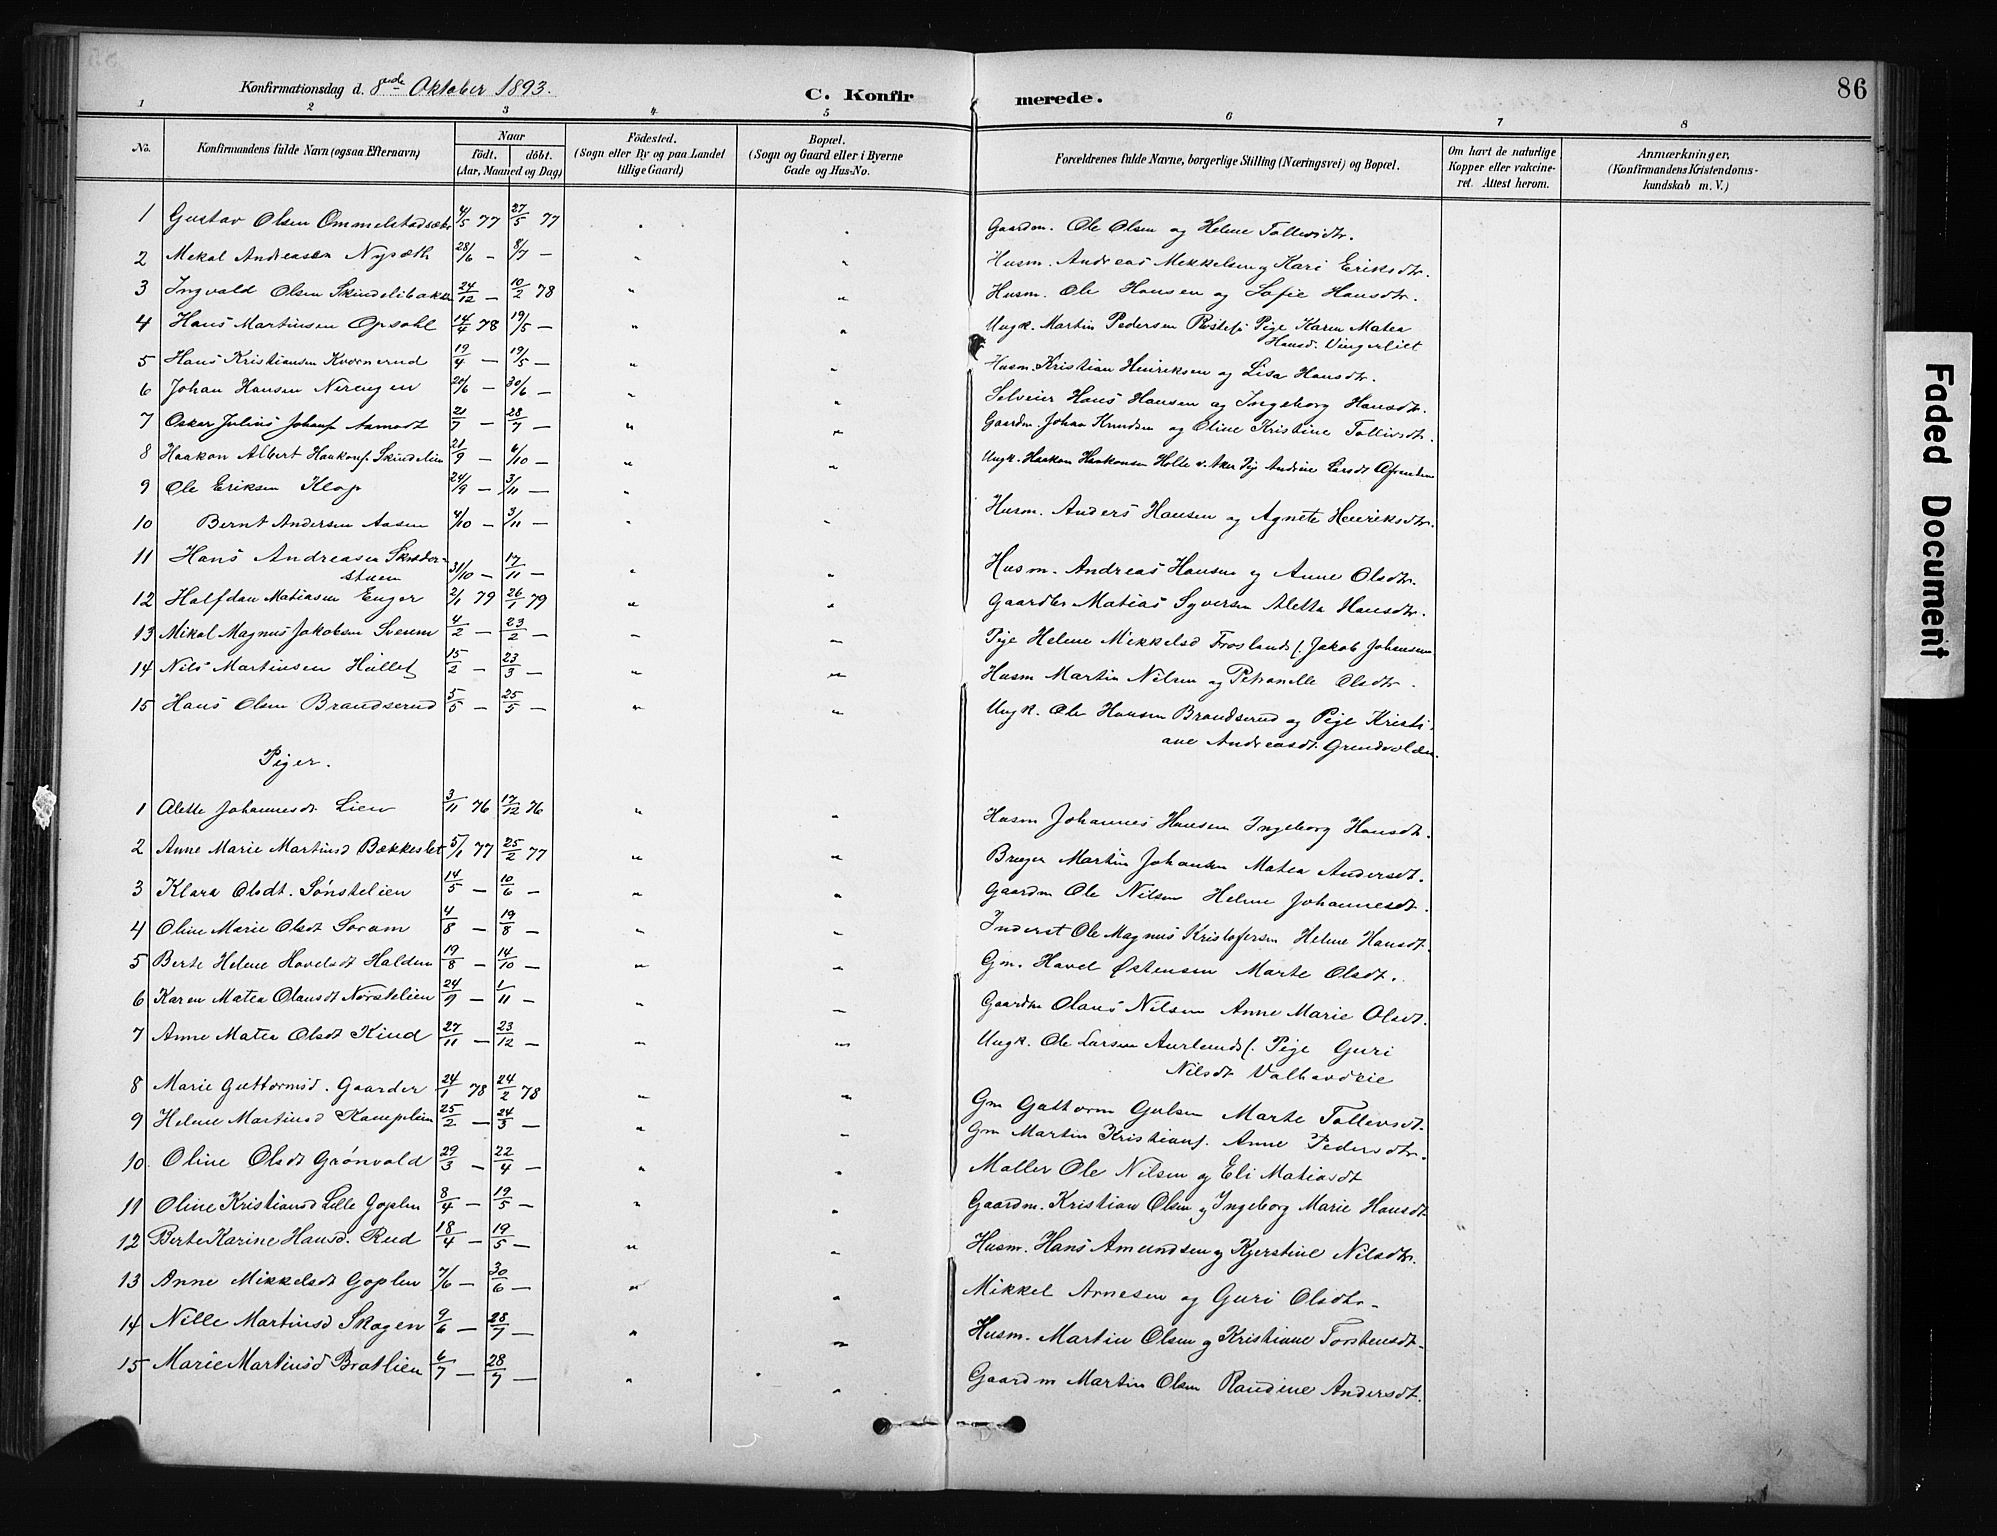 86
Konfirmationsdag d. 8nde Oktober 1893.
C. Konfirmerede.
1 2 3 4 5 6 7 8
No.
Konfirmandens fulde Navn (ogsaa Efternavn)
Naar
födt. döbt.
(Aar, Maaned og Dag)
Födested.
(Sogn eller By og paa Landet
tillige Gaard)
Bopæl.
(Sogn og Gaard eller i Byerne
Gade og Hus-No.
Forældrenes fulde Navne, borgerlige Stilling (Næringsvei) og Bopæl.
Om havt de naturlige
Kopper eller vakcine-
ret. Attest herom.
Anmærkninger,
(Konfirmandens Kristendoms-
kundskab m. V.)
1 Gustav Olsen Ommelstadsæter 4/5 77 27/5 77 " " Gaardm. Ole Olsen og Helene Tollevsdtr.
2 Mekal Andreasen Nysæth 28/6 — 8/7 — " " Husm. Andreas Mekkelsen og Kari Eriksdtr.
3 Ingvald Olsen Skindelibakken 24/12 — 10/2 78 " " Husm. Ole Hansen og Sofie Hansdtr.
4 Hans Martinsen Opsahl 14/4 78 19/5 — " " Ungk. Martin Pedersen Pige Karen Matea
Hansd. Vingerliet
5 Hans Kristiansen Kværnerud 19/4 — 19/5 — " " Husm. Kristian Henriksen og Lisa Hansdtr.
6 Johan Hansen Nerengen 20/6 — 30/6 — " " Selveier Hans Hansen og Ingeborg Hansdtr.
7 Oskar Julius Johans. Aamodt 21/7 — 28/7 — " " Gaardm. Johan Knudsen og Oline Kristine Tollevsdtr.
8 Haakon Albert Haakons. Skindelien 21/9 — 6/10 — " " Ungk. Haakon Haakonsen Holte v. Aker Pige Andrine Larsdt
9 Ole Eriksen Klop 24/9 — 3/11 — "
10 Bernt Andersen Aasen 4/10 — 3/11 — " " Husm. Anders Hansen og Agnete Henriksdtr.
11 Hans Andreasen Skræder-
stuen 31/10 — 17/11 — " " Husm. Andreas Hansen og Anne Olsdtr.
12 Halfdan Matiasen Enger 2/1 79 26/1 79 " " Gaardbr Matias Syversen Aletta Hansdtr.
13 Mikal Magnus Jakobsen Sveum 4/2 — 23/2 — " " Pige Helene Mikkelsd Froslands f. Jakob Johansen
14 Nils Martinsen Hullet 15/2 — 23/3 — " " Husm Martin Nilsen og Petronelle Olsdtr.
15 Hans Olsen Brandserud 5/5 — 25/5 — " " Ungk. Ole Hansen Brandserud og Pige Kristi-
ane Andreasdt. Grundvolden.
Piger.
1 Alette Johannesdt Lien 3/11 76 17/12 76 " " Husm Johannes Hansen Ingeborg Hansdt.
2 Anne Marie Martinsd Bækkeslet 5/1 77 25/2 77 " " Bruger Martin Johansen Matea Andersdt.
3 Klara Olsdt. Sønstelien 14/5 — 10/6 — " " Gaardm Ole Nilsen Helene Johannesdt.
4 Oline Marie Olsdt Soram 4/8 — 19/8 — " " Inderst Ole Magnus Kristofersen Helene Hansdt.
5 Berte Helene Hovelsdt Halden 19/8 — 14/10 — " " Gm. Havel Østensen Marte Olsdt.
6 Karen Matea Olausdt Nørstelien 24/9 — 1/11 — " " Gaardm Olaus Nilsen Anne Marie Olsdt.
7 Anne Matea Olsdt Kind 27/11 — 23/12 — " " Ungk. Ole Larsen Aurlunds f. Pige Guri
Nilsdt
8 Marie Guttormsd. Gaarder 24/1 78 24/2 78 " " Gm Guttorm Gulsen Marte Tollevsdt.
9 Helene Martinsd Kamplien 25/2 — 24/3 — " " Gm Martin Kristians. Anne Pedersdtr.
10. Oline Olsdt Grønvold 29/3 — 22/4 — " " Møller Ole Nilsen og Eli Matiasdt
11 Oline Kristiansd Lille Goplen 8/4 — 19/5 — " " Gaardm. Kristian Olsen og Ingeborg Marie Hansdt
12 Berte Karine Hansd. Rud 18/4 — 19/5 — " " Husm. Hans Amundsen og Kjerstine Nilsdtr.
13 Anne Mikkelsdt Goplen 7/6 — 30/6 — " " Mikkel Arnesen og Guri Olsdtr
14 Nille Martinsd Skogen 9/6 — 28/7 — " " Husm. Martin Olsen og Kristiane Torstensdt
15 Marie Martinsd Bratlien 6/7 — 28/7 — " " Gaardm Martin Olsen Randine Andersdt.
Faded Document